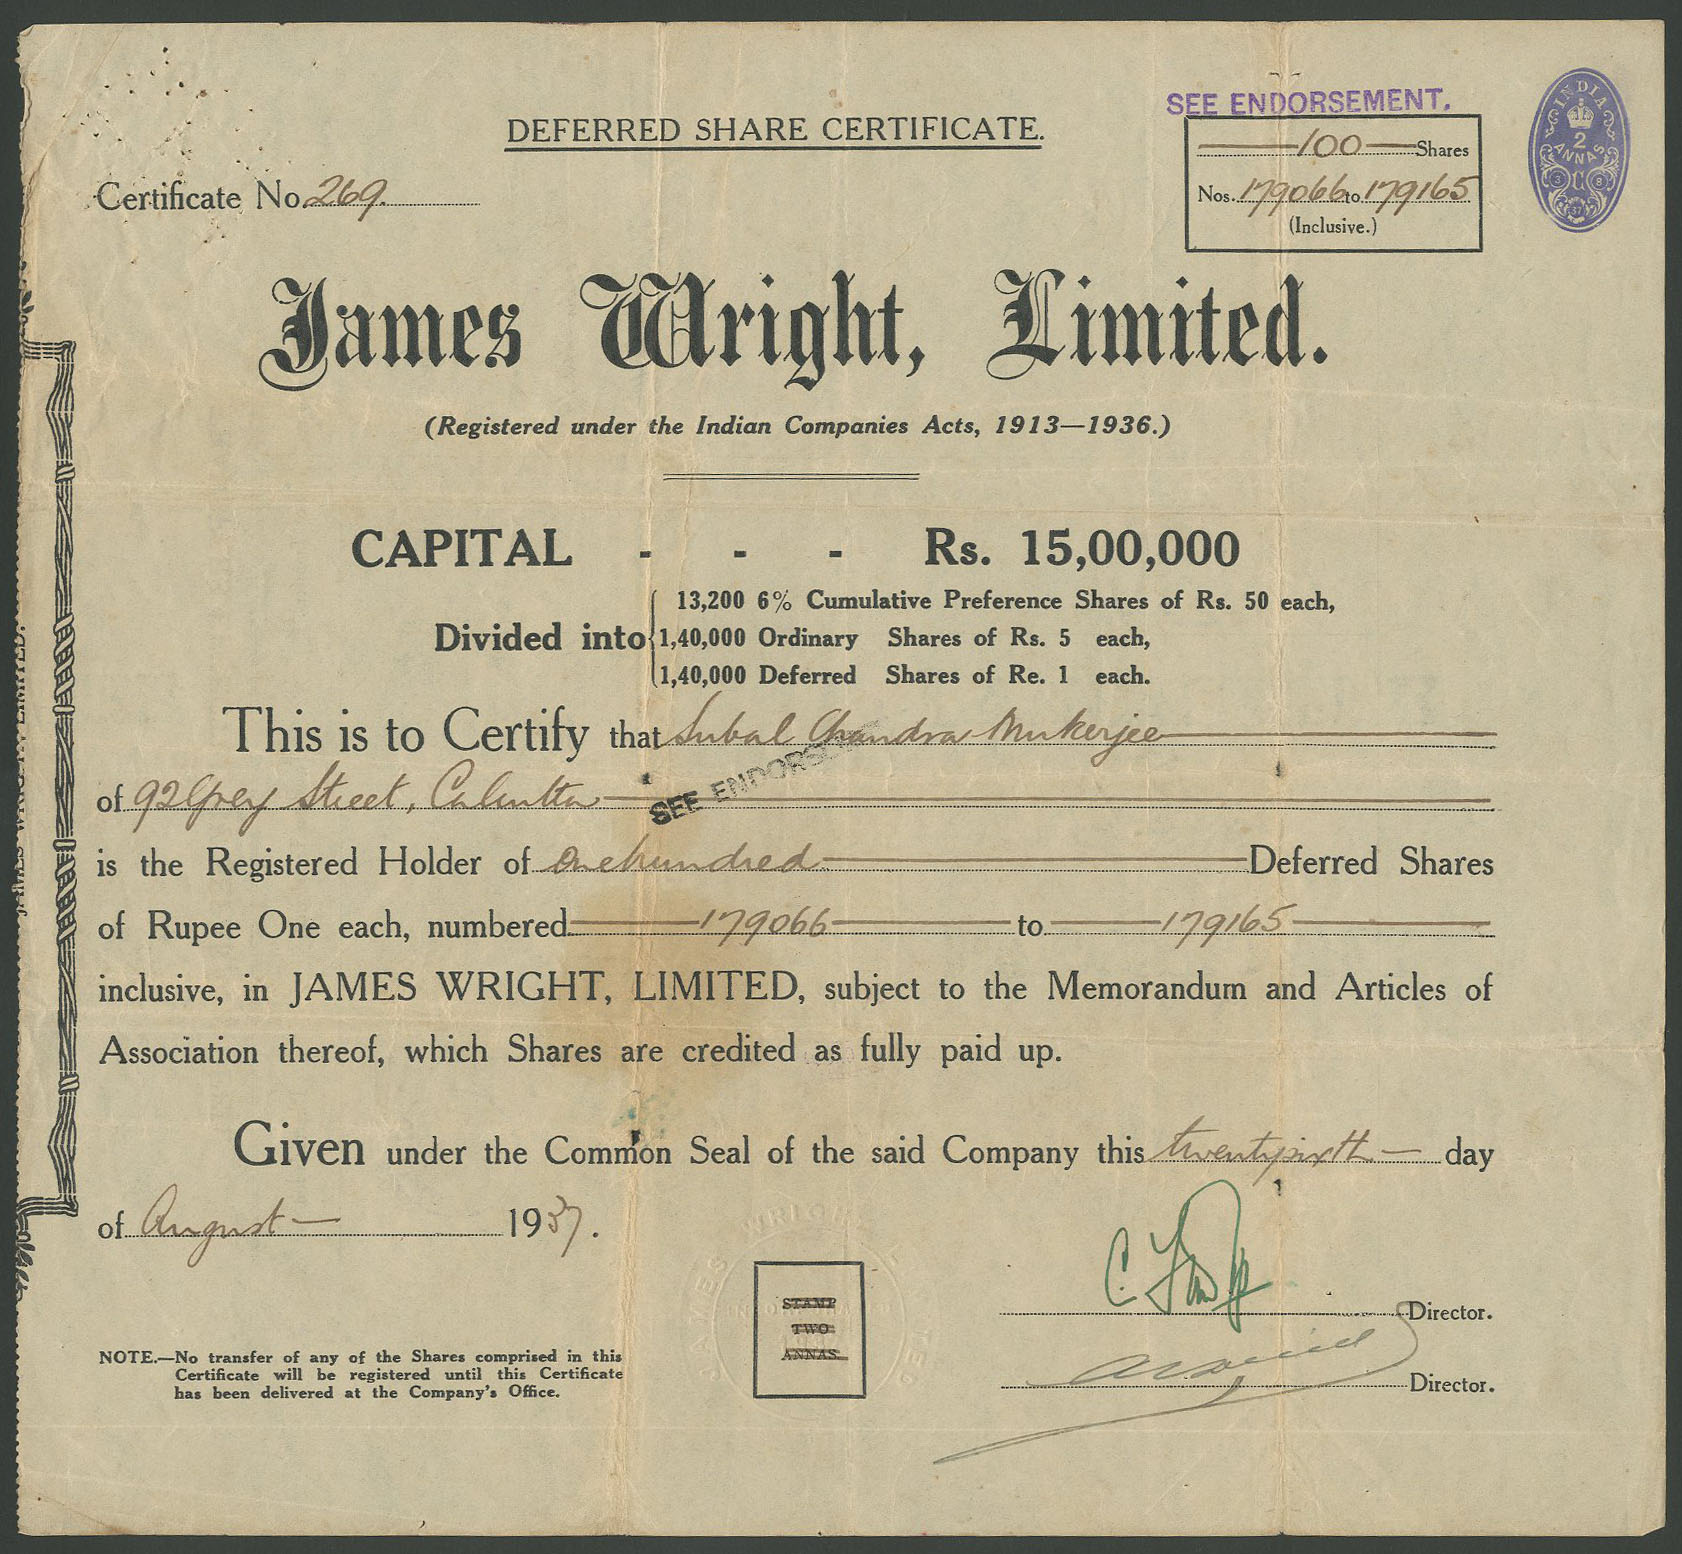 SEE ENDORSEMENT.
DEFERRED SHARE CERTIFICATE.
100 Shares
Nos. 179066 to 179165
(Inclusive.)
INDIA
2
ANNAS
Certificate No. 269.
James Wright, Limited.
(Registered under the Indian Companies Acts, 1913—1936.)
CAPITAL - - - Rs. 15,00,000
Divided into
13,200 6% Cumulative Preference Shares of Rs. 50 each,
1,40,000 Ordinary Shares of Rs. 5 each,
1,40,000 Deferred Shares of Re. 1 each.
This is to Certify that Subal Chandra Mukerjee
of 92 Grey Street, Calcutta
SEE ENDORSE
is the Registered Holder of One hundred Deferred Shares
of Rupee One each, numbered 179066 to 179165
inclusive, in JAMES WRIGHT, LIMITED, subject to the Memorandum and Articles of
Association thereof, which Shares are credited as fully paid up.
Given under the Common Seal of the said Company this twentysixth day
of August 1937.
STAMP
TWO
ANNAS.
Director.
Director.
NOTE.—No transfer of any of the Shares comprised in this
Certificate will be registered until this Certificate
has been delivered at the Company's Office.